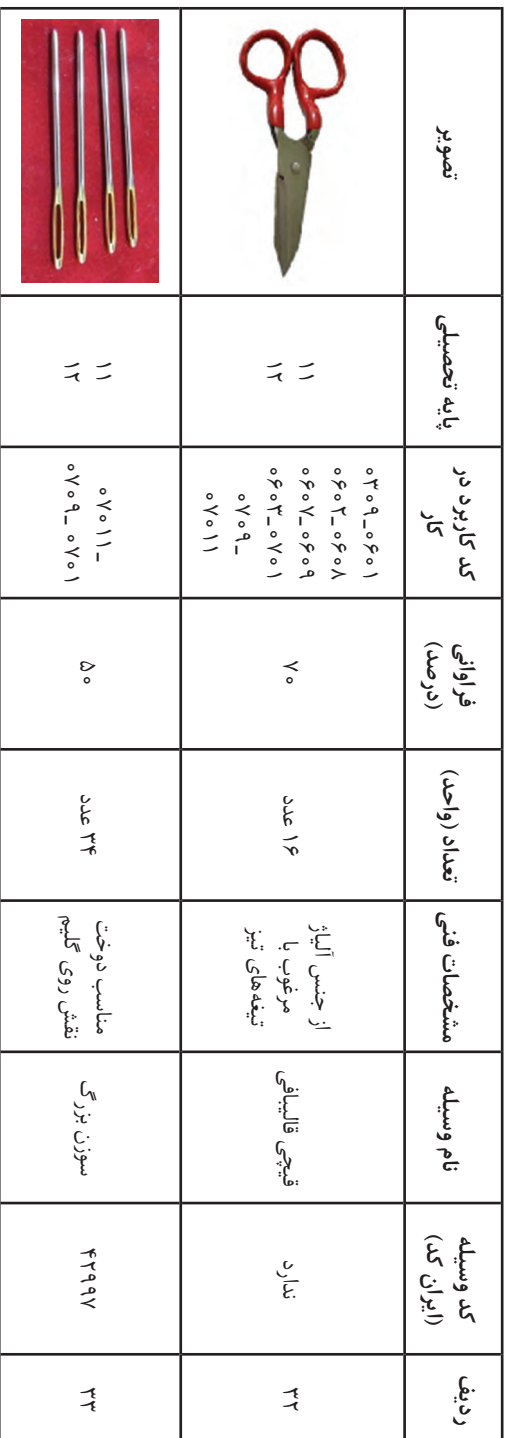 ردیف
کد وسیله
(ایران کد)
نام وسیله
مشخصات فنی
تعداد (واحد)
فراوانی
(درصد)
کد کاربرد در
کار
پایه تحصیلی
تصویر
۳۲
ندارد
قیچی قالیبافی
از جنس آلیاژ
مرغوب با
تیغه‌های تیز
۱۶ عدد
۷۰
۰۳۰۹_۰۶۰۱
۰۶۰۲_۰۶۰۸
۰۶۰۷_۰۶۰۹
۰۶۰۳_۰۷۰۱
۰۷۰۹_
۰۷۰۱۱
۱۱
۱۲
۳۳
۴۲۹۹۷
سوزن بزرگ
مناسب دوخت
نقش روی گلیم
۳۴ عدد
۵۰
۰۷۰۱۱_
۰۷۰۹_۰۷۰۱
۱۱
۱۲